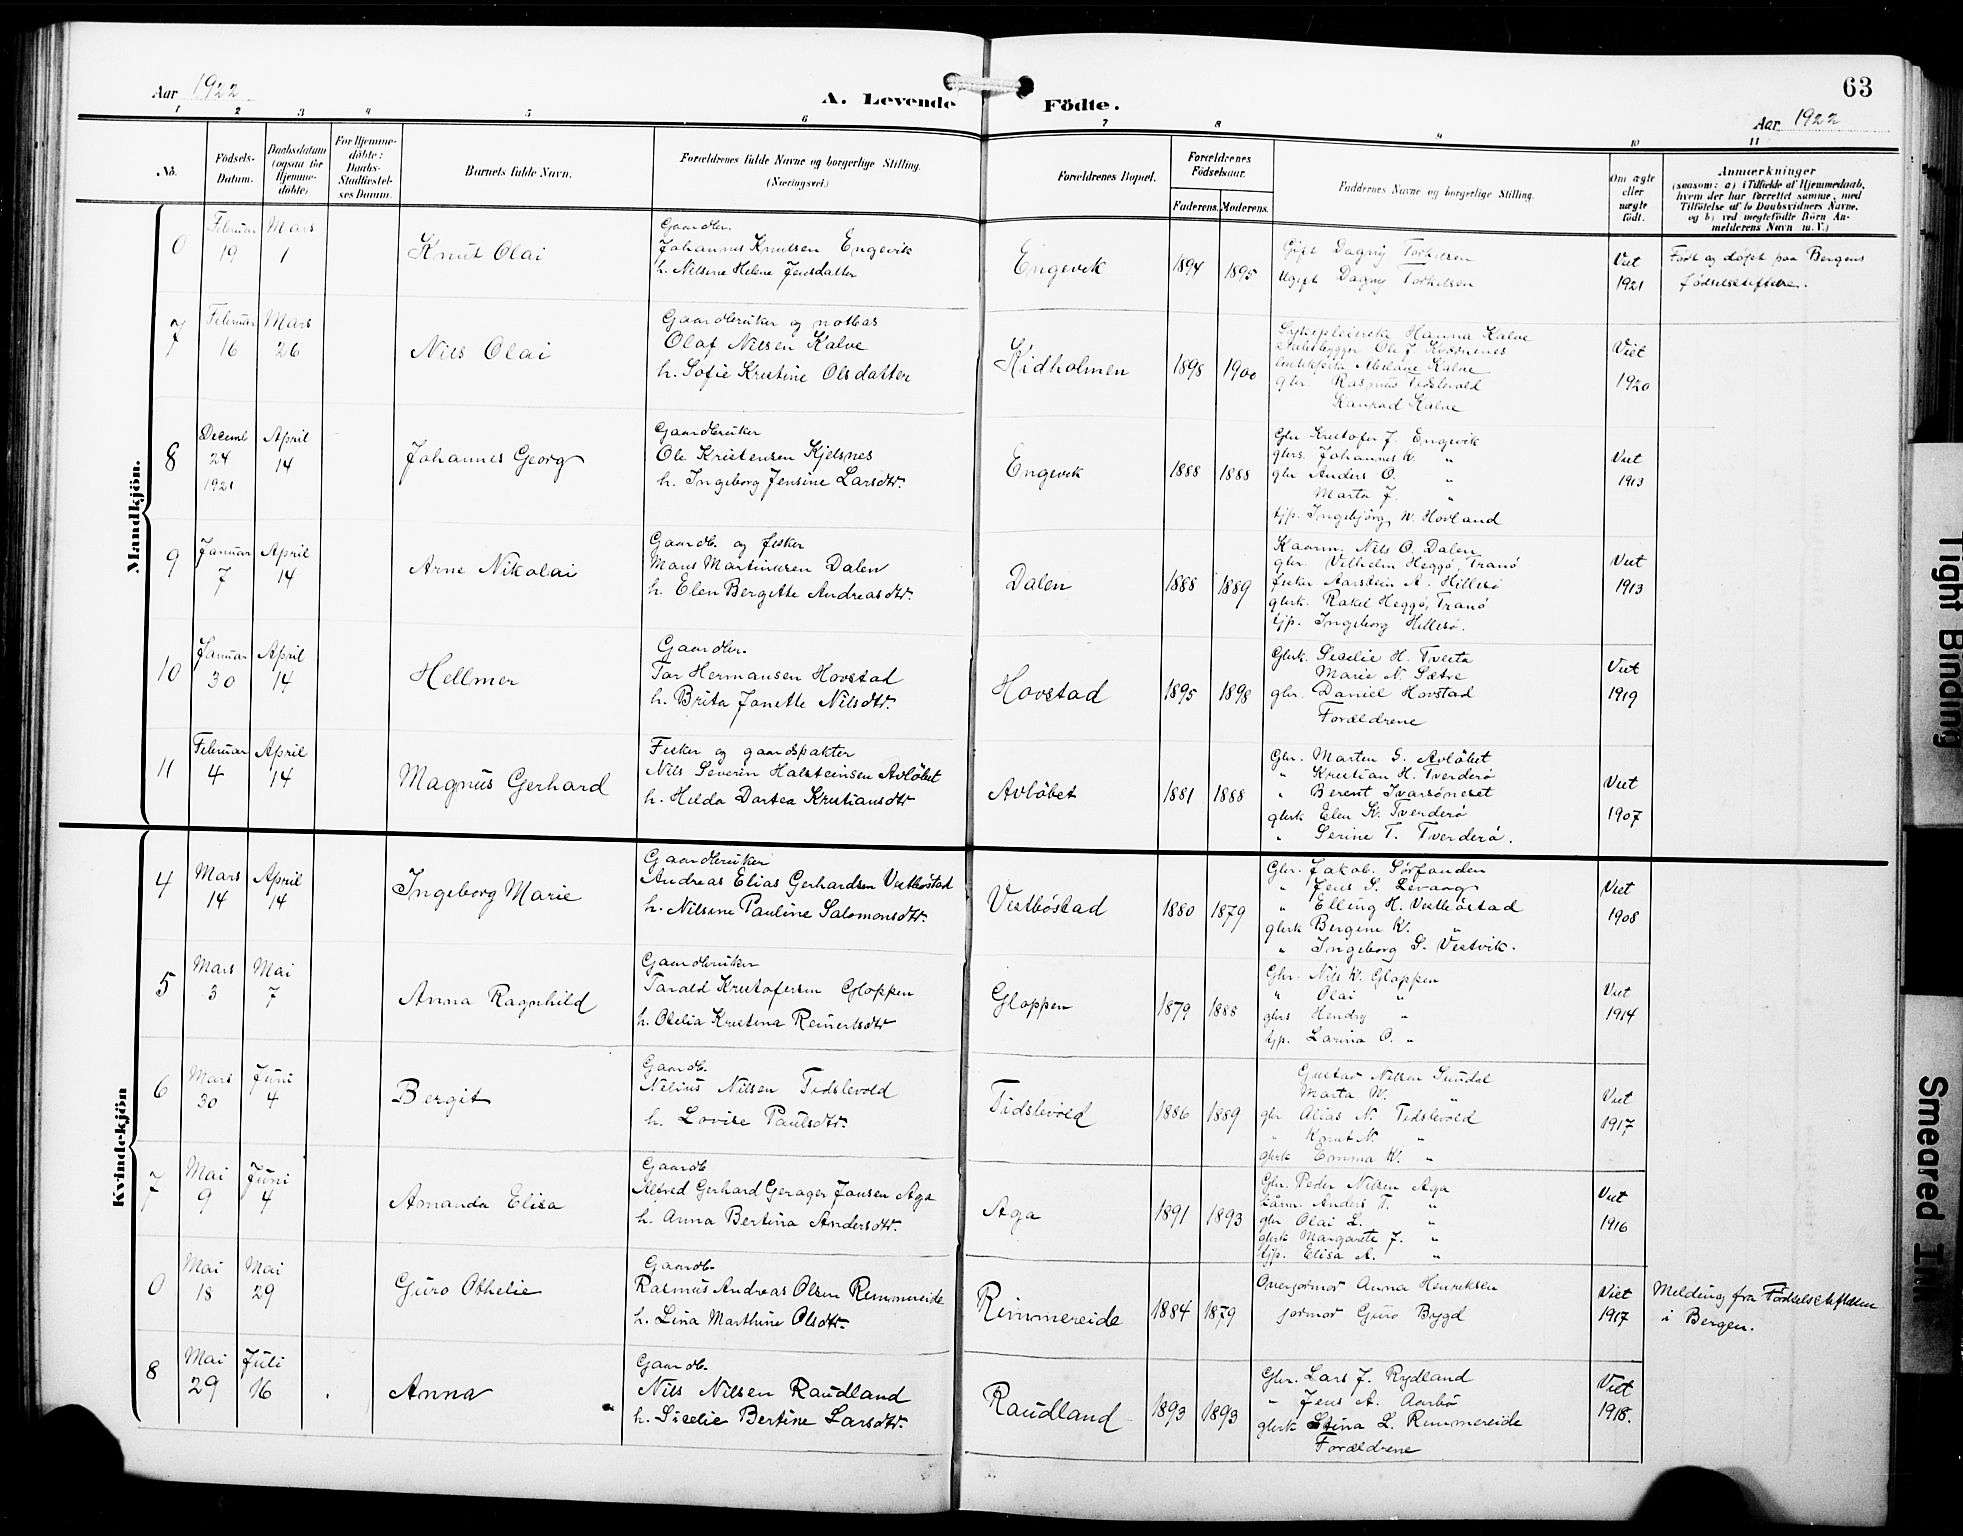 63
Aar 1922
A. Levende Födte.
Aar 1922
1 2 3 4 5 6 7 8 9 10 11
No.
Födsels-Datum.
Daabsdatum (ogsaa for Hjemme-döbte)
For Hjemme-döbte: Daabs-Stadfæstel-ses Datum.
Barnets fulde Navn.
Forældrenes fulde Navne og borgerlige Stilling. (Næringsvei.)
Forældrenes Bopæl.
Forældrenes Födselsaar.
Faderens. Moderens.
Faddernes Navne og borgerlige Stilling.
Om ægte eller uægte födt.
Anmærkninger
(saasom: a) i Tilfælde af Hjemmedaab,
hvem der har forrettet samme, med
Tilföielse af to Daabsvidners Navne,
og b) ved uegtefödte Börn An-
melderens Navn m. V.)
Mandkjön.
0
Februar 19
Mars 1
Knut Olai
Gaardbr.
Johannes Knutsen Engevik
h. Nilsine Helene Jensdatter
Engevik
1894 1895
Gift Dagny Torkilsen
Ugift Dagny Torkelsen
Viet 1921
Födt og döpt paa Bergens
födselsstiftelse.
7
Februar 16
Mars 26
Nils Olai
Gaardbruker og notbas
Olaf Nilsen Kalve
h. Sofie Kristine Olsdatter
Kidholmen
1898 1900
Sykepleierske Hanna Kalve
Ole J. Kvernenes
Kalve
gbr Rasmus Tidslevold
Konrad Kalve
Viet 1920
8
Decemb 24 1921
April 14
Johannes Georg
Gaardbruker
Ole Kristensen Kjelsnes
h. Ingeborg Jensine Larsdtr.
Engevik
1888 1888
Gbr Kristofer J. Engevik
gbrs. Johannes K. "
gbr Anders O. "
Marta J. "
tjp. Ingebjörg N. Hovland
Viet 1913
9
Januar 7
April 14
Arne Nikolai
Gaardb. og fisker
Mons Martinusen Dalen
h. Elen Bergitte Andreasdtr.
Dalen
1888 1889
Kaarm. Nils O. Dalen
gbr. Vilhelm Heggö, Tranö
fisker Aarstein A. Hillesö
gbrk. Rakel Heggö, Tranö
tjp. Ingeborg Hillesö.
Viet 1913
10
Januar 30
April 14
Hellmer
Gaardbr.
Tor Hermansen Hovstad
h. Brita Janette Nilsdtr.
Hovstad
1895 1898
Gbrk. Secelie H. Tveita
Marie N. Sætre
gbr. Daniel Hovstad
Forældrene
Viet 1919
11
Februar 4
April 14
Magnus Gerhard
Fisker og gaardspakter
Nils Severin Halsteinsen Avlöbet
h. Hilda Dortea Kristiansdtr
Avlöbet
1881 1888
Gbr. Marten G. Avlöbet
" Kristian H. Tverderö
" Berent Ivarsöneset
gbrk Elen K. Tverderö
" Serine T. Tverderö.
Viet 1907
Kvindekjön
4
Mars 14
April 14
Ingeborg Marie
Gaardbruker
Andreas Elias Gerhardsen Vestböstad
h. Nilsine Pauline Salomonsdtr.
Vestböstad
1880 1879
Gbr. Jakob. Sörfonden
" Jens S. Levaag
" Elling H. Vestböstad
gbrk Bergine K. "
" Ingeborg S. Vestvik.
Viet 1908
5
Mars 3
Mai 7
Anna Ragnhild
Gaardbruker
Torald Kristofersen Gloppen
h. Otelia Kristina Reinertsdtr
Gloppen
1879 1888
Gbr. Nils K. Gloppen
" Olai "
gbrs Hendry "
tjp. Larina O. "
Viet 1914
6
Mars 30
Juni 4
Bergit
Gaardb.
Nilius Nilsen Tidslevold
h. Lovise Paulsdtr.
Tidslevold
1886 1889
Gustav Nilsen Sundal
Marta W. "
gbr Alias N. Tidslevold
" Knut N. "
gbrk Emma K. "
Viet 1917
7
Mai 9
Juni 4
Amanda Elisa
Gaardb
Alfred Gerhard Gerager Jansen Aga
h. Anna Bertina Andersdtr.
Aga
1891 1893
Gbr. Peder Nilsen Aga
kårm. Anders T. "
gbr Olai L. "
gbrk Margarete J. "
tjp. Elisa A. "
Viet 1916
0
Mai 18
Mai 29
Guro Othelie
Gaardb.
Rasmus Andreas Olsen Rimmereide
h. Lina Marthine Olsdtr.
Rimmereide
1884 1879
Overjormor Anna Henriksen
jormor Guro Bygd
Viet 1917
Melding fra Födselsstiftelsen
i Bergen.
8
Mai 29
Juli 16
Anna
Gaardb.
Nils Nilsen Raudland
h. Sicelie Bertine Larsdtr.
Raudland
1893 1893
Gbr. Lars J. Rydland
" Jens A. Aarbö
gbrk Stina L. Rimmereide
Forældrene
Viet 1918.
Tight Binding
Smeared Ink